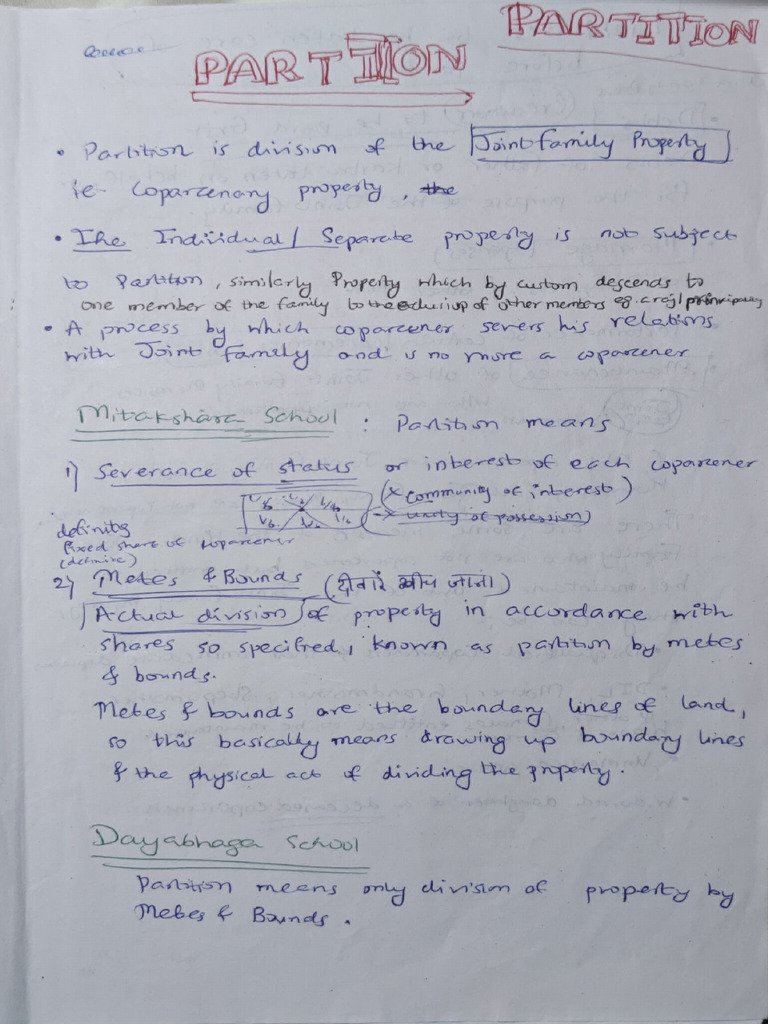 PARTITION
PARTITION
• Partition is division of the Joint Family Property
ie coparcenary property. the
• The Individual/ Separate property is not subject
to Partition, similarly Property which by custom descends to
one member of the family to the exclusion of other members eg. a raj/ principality
• A process by which coparcener severs his relations
with Joint Family and is no more a coparcener
Mitakshara School : Partition means
1) Severance of status or interest of each coparcener
(x community of interest)
(x unity of possession)
definity
fixed share of coparcener
(definite)
2) Metes & Bounds (दीवारें खीच जाना)
Actual division of property in accordance with
shares so specified, known as partition by metes
& bounds.
Metes & bounds are the boundary lines of land,
so this basically means drawing up boundary lines
& the physical act of dividing the property.
Dayabhaga School
Partition means only division of property by
Metes & Bounds.